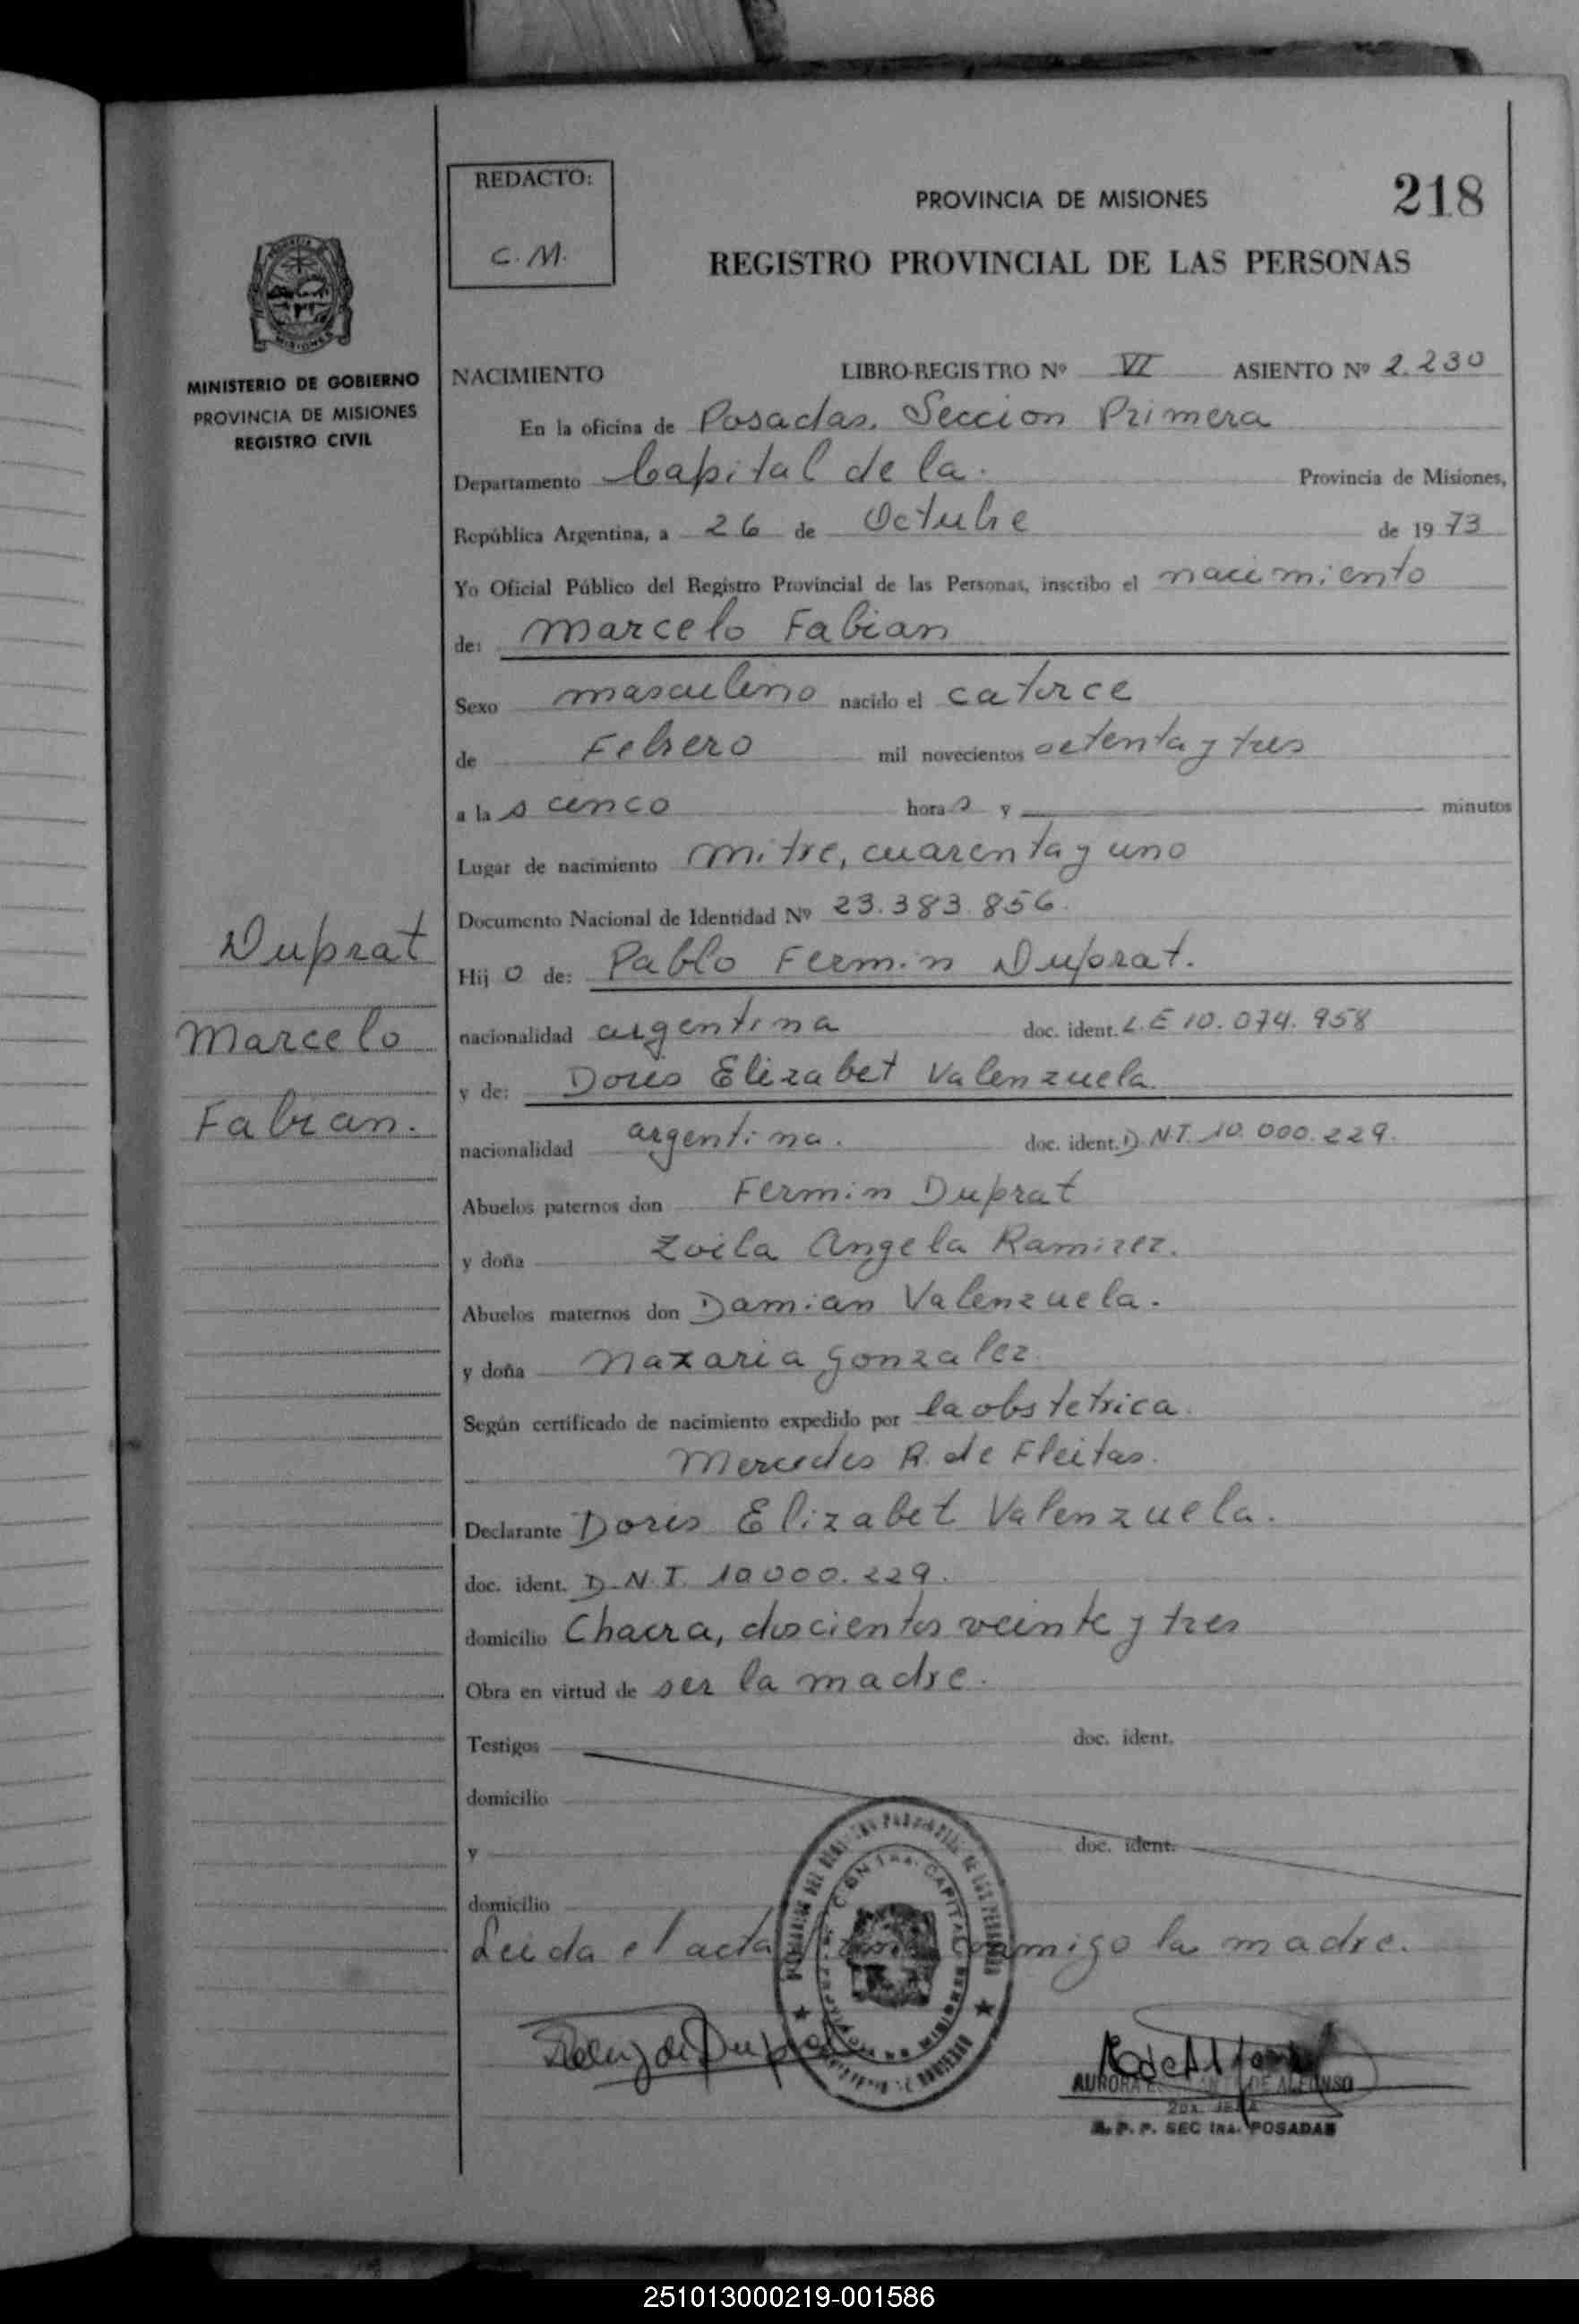 REDACTO:
C. M.
PROVINCIA DE MISIONES
218
REGISTRO PROVINCIAL DE LAS PERSONAS
MISIONES
MINISTERIO DE GOBIERNO
PROVINCIA DE MISIONES
REGISTRO CIVIL
NACIMIENTO LIBRO-REGISTRO Nº VI ASIENTO Nº 2.230
En la oficina de Posadas, Seccion Primera
Departamento Capital de la. Provincia de Misiones,
República Argentina, a 26 de Octubre de 1973
Yo Oficial Público del Registro Provincial de las Personas, inscribo el nacimiento
de: Marcelo Fabian
Sexo masculino nacido el catorce
de Febrero mil novecientos setenta y tres
a las cinco horas y minutos
Lugar de nacimiento Mitre, cuarenta y uno
Documento Nacional de Identidad Nº 23.383.856.
Duprat
Marcelo
Fabian.
Hijo de: Pablo Fermin Duprat.
nacionalidad argentina doc. ident. L.E 10.074.958
y de: Doris Elizabet Valenzuela.
nacionalidad argentina. doc. ident. D.N.I. 10.000.229.
Abuelos paternos don Fermin Duprat
y doña Zoila Angela Ramirez.
Abuelos maternos don Damian Valenzuela.
y doña Nazaria Gonzalez
Según certificado de nacimiento expedido por la obstetrica.
Mercedes R. de Fleitas.
Declarante Doris Elizabet Valenzuela.
doc. ident. D.N.I. 10.000.229.
domicilio Chacra, doscientos veinte y tres
Obra en virtud de ser la madre.
Testigos doc. ident.
domicilio
y doc. ident.
domicilio
Leida el acta conmigo la madre.
AURORA DE ALFONSO
2da. JEFA
R. P. P. SEC 1RA. POSADAS
251013000219-001586